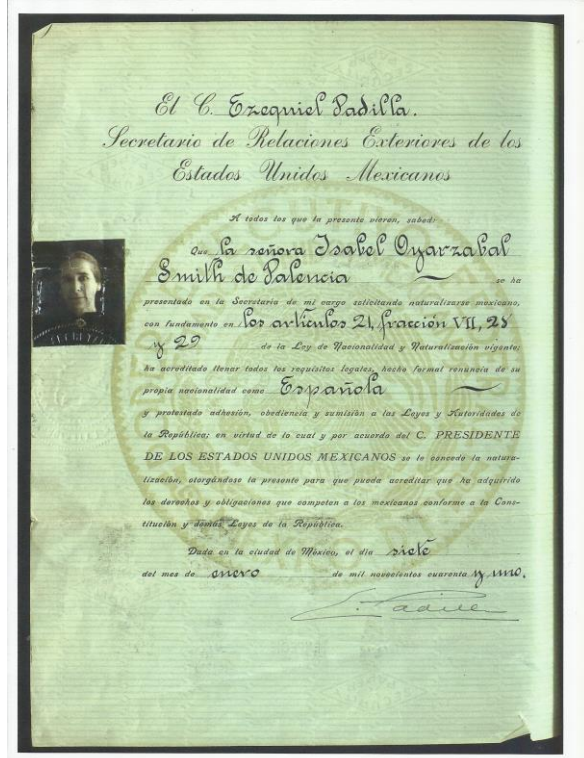 El C. Ezequiel Padilla.
Secretario de Relaciones Exteriores de los
Estados Unidos Mexicanos
A todos los que la presente vieren, sabed:
Que la señora Isabel Oyarzabal
Smith de Palencia se ha
presentado en la Secretaría de mi cargo solicitando naturalizarse mexicano,
con fundamento en los artículos 21, fracción VII, 28
y 29 de la Ley de Nacionalidad y Naturalización vigente;
ha acreditado llenar todos los requisitos legales, hecho formal renuncia de su
propia nacionalidad como Española
y protestado adhesión, obediencia y sumisión a las Leyes y Autoridades de
la República; en virtud de lo cual y por acuerdo del C. PRESIDENTE
DE LOS ESTADOS UNIDOS MEXICANOS se le concede la natura-
lización, otorgándose la presente para que pueda acreditar que ha adquirido
los derechos y obligaciones que competen a los mexicanos conforme a la Cons-
titución y demás Leyes de la República.
Dada en la ciudad de México, el día siete
del mes de enero de mil novecientos cuarenta y uno.
E. Padilla